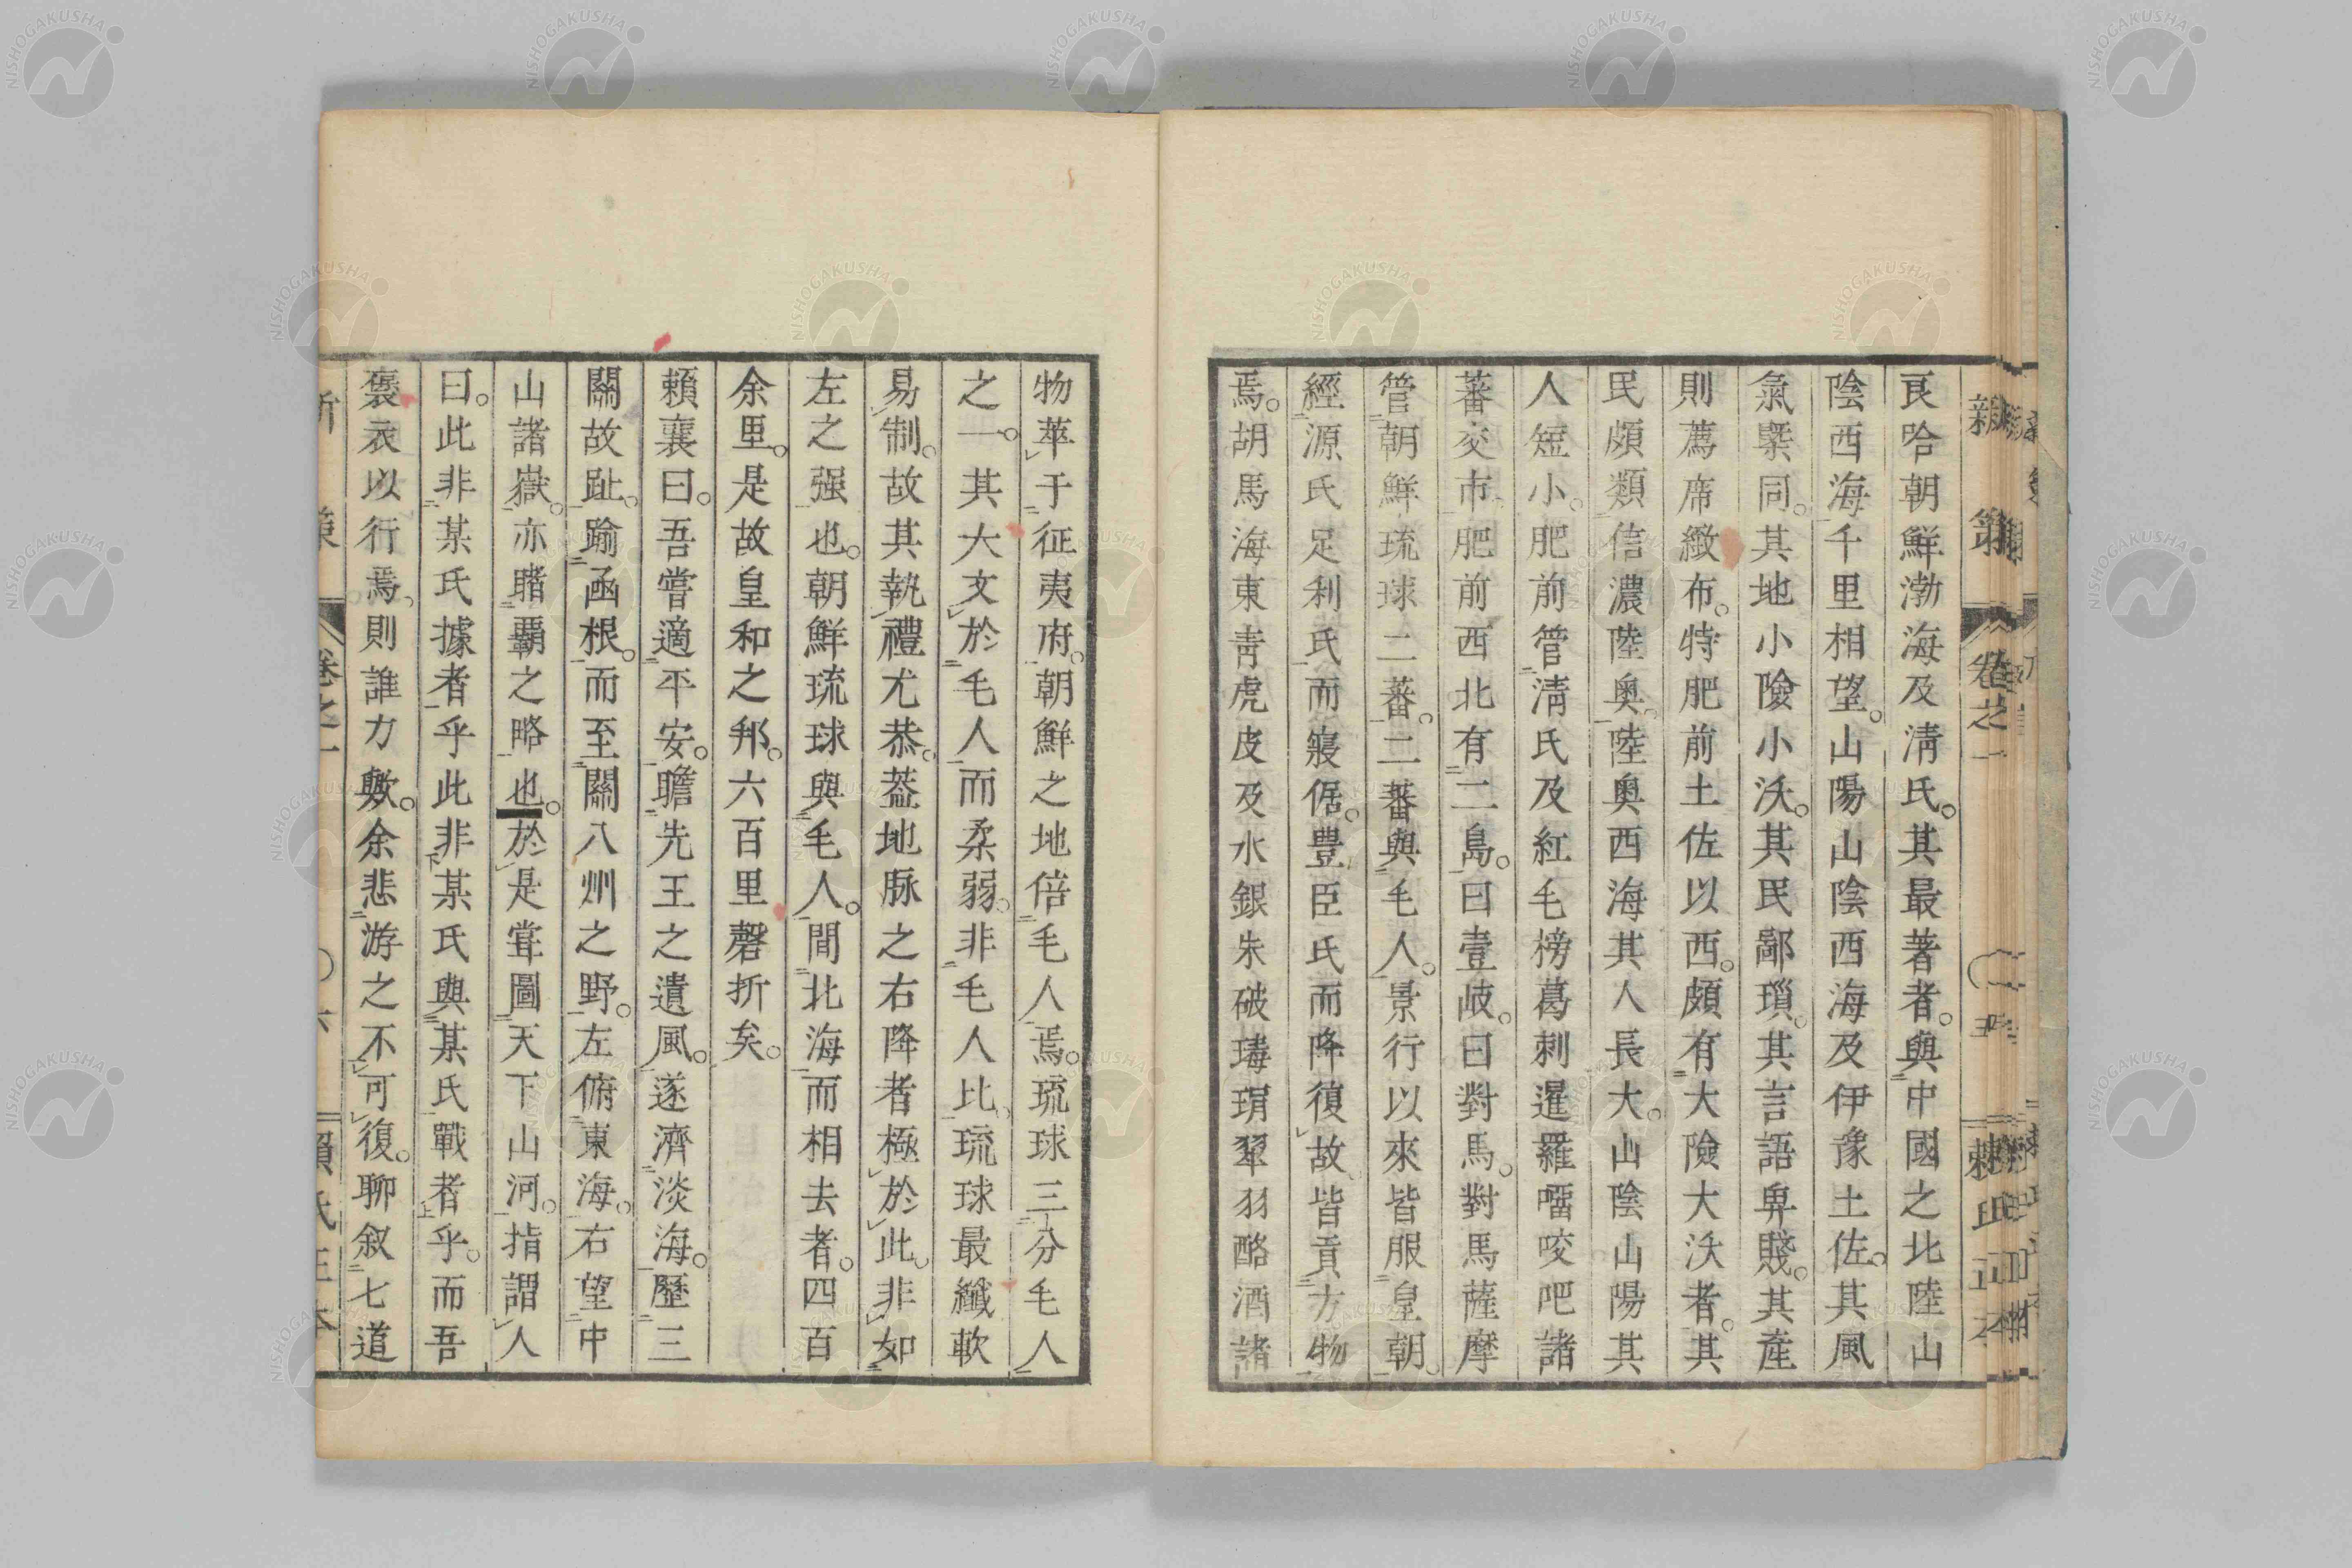 良哈朝鮮渤海及淸氏。其最著者。與中國之北陸山
陰西海千里相望。山陽山陰西海及伊豫土佐。其風
氣槩同。其地小險小沃。其民鄙瑣。其言語鄙賤。其產
則薦席緻布。特肥前土佐以西。頗有大險大沃者。其
民頗類信濃陸奧。陸奧西海其人長大。山陰山陽其
人短小。肥前管淸氏及紅毛榜葛剌暹羅㗖咬吧諸
蕃交市。肥前西北有二島。曰壹岐。曰對馬。對馬薩摩
管朝鮮琉球二蕃。二蕃與毛人。景行以來皆服皇朝。
經源氏足利氏而寢倨。豊臣氏而降復故。皆貢方物
焉。胡馬海東靑虎皮及水銀朱破瑇瑁翠羽酪酒諸
物萃于征夷府。朝鮮之地倍毛人焉。琉球三分毛人
之一。其大文於毛人而柔弱。非毛人比。琉球最纖軟
易制。故其執禮尤恭。葢地脉之右降者極於此。非如
左之强也。朝鮮琉球與毛人。間北海而相去者。四百
余里。是故皇和之邦。六百里磬折矣。
賴襄曰。吾嘗適平安。瞻先王之遺風。遂濟淡海。歷三
關故趾。踰函根。而至關八州之野。左俯東海。右望中
山諸嶽。亦睹覇之略也。於是嘗圖天下山河。指謂人
曰。此非某氏據者乎此非某氏與某氏戰者乎。而吾
褒衣以行焉。則誰力歟。余悲游之不可復。聊叙七道
卷之一
賴氏正本